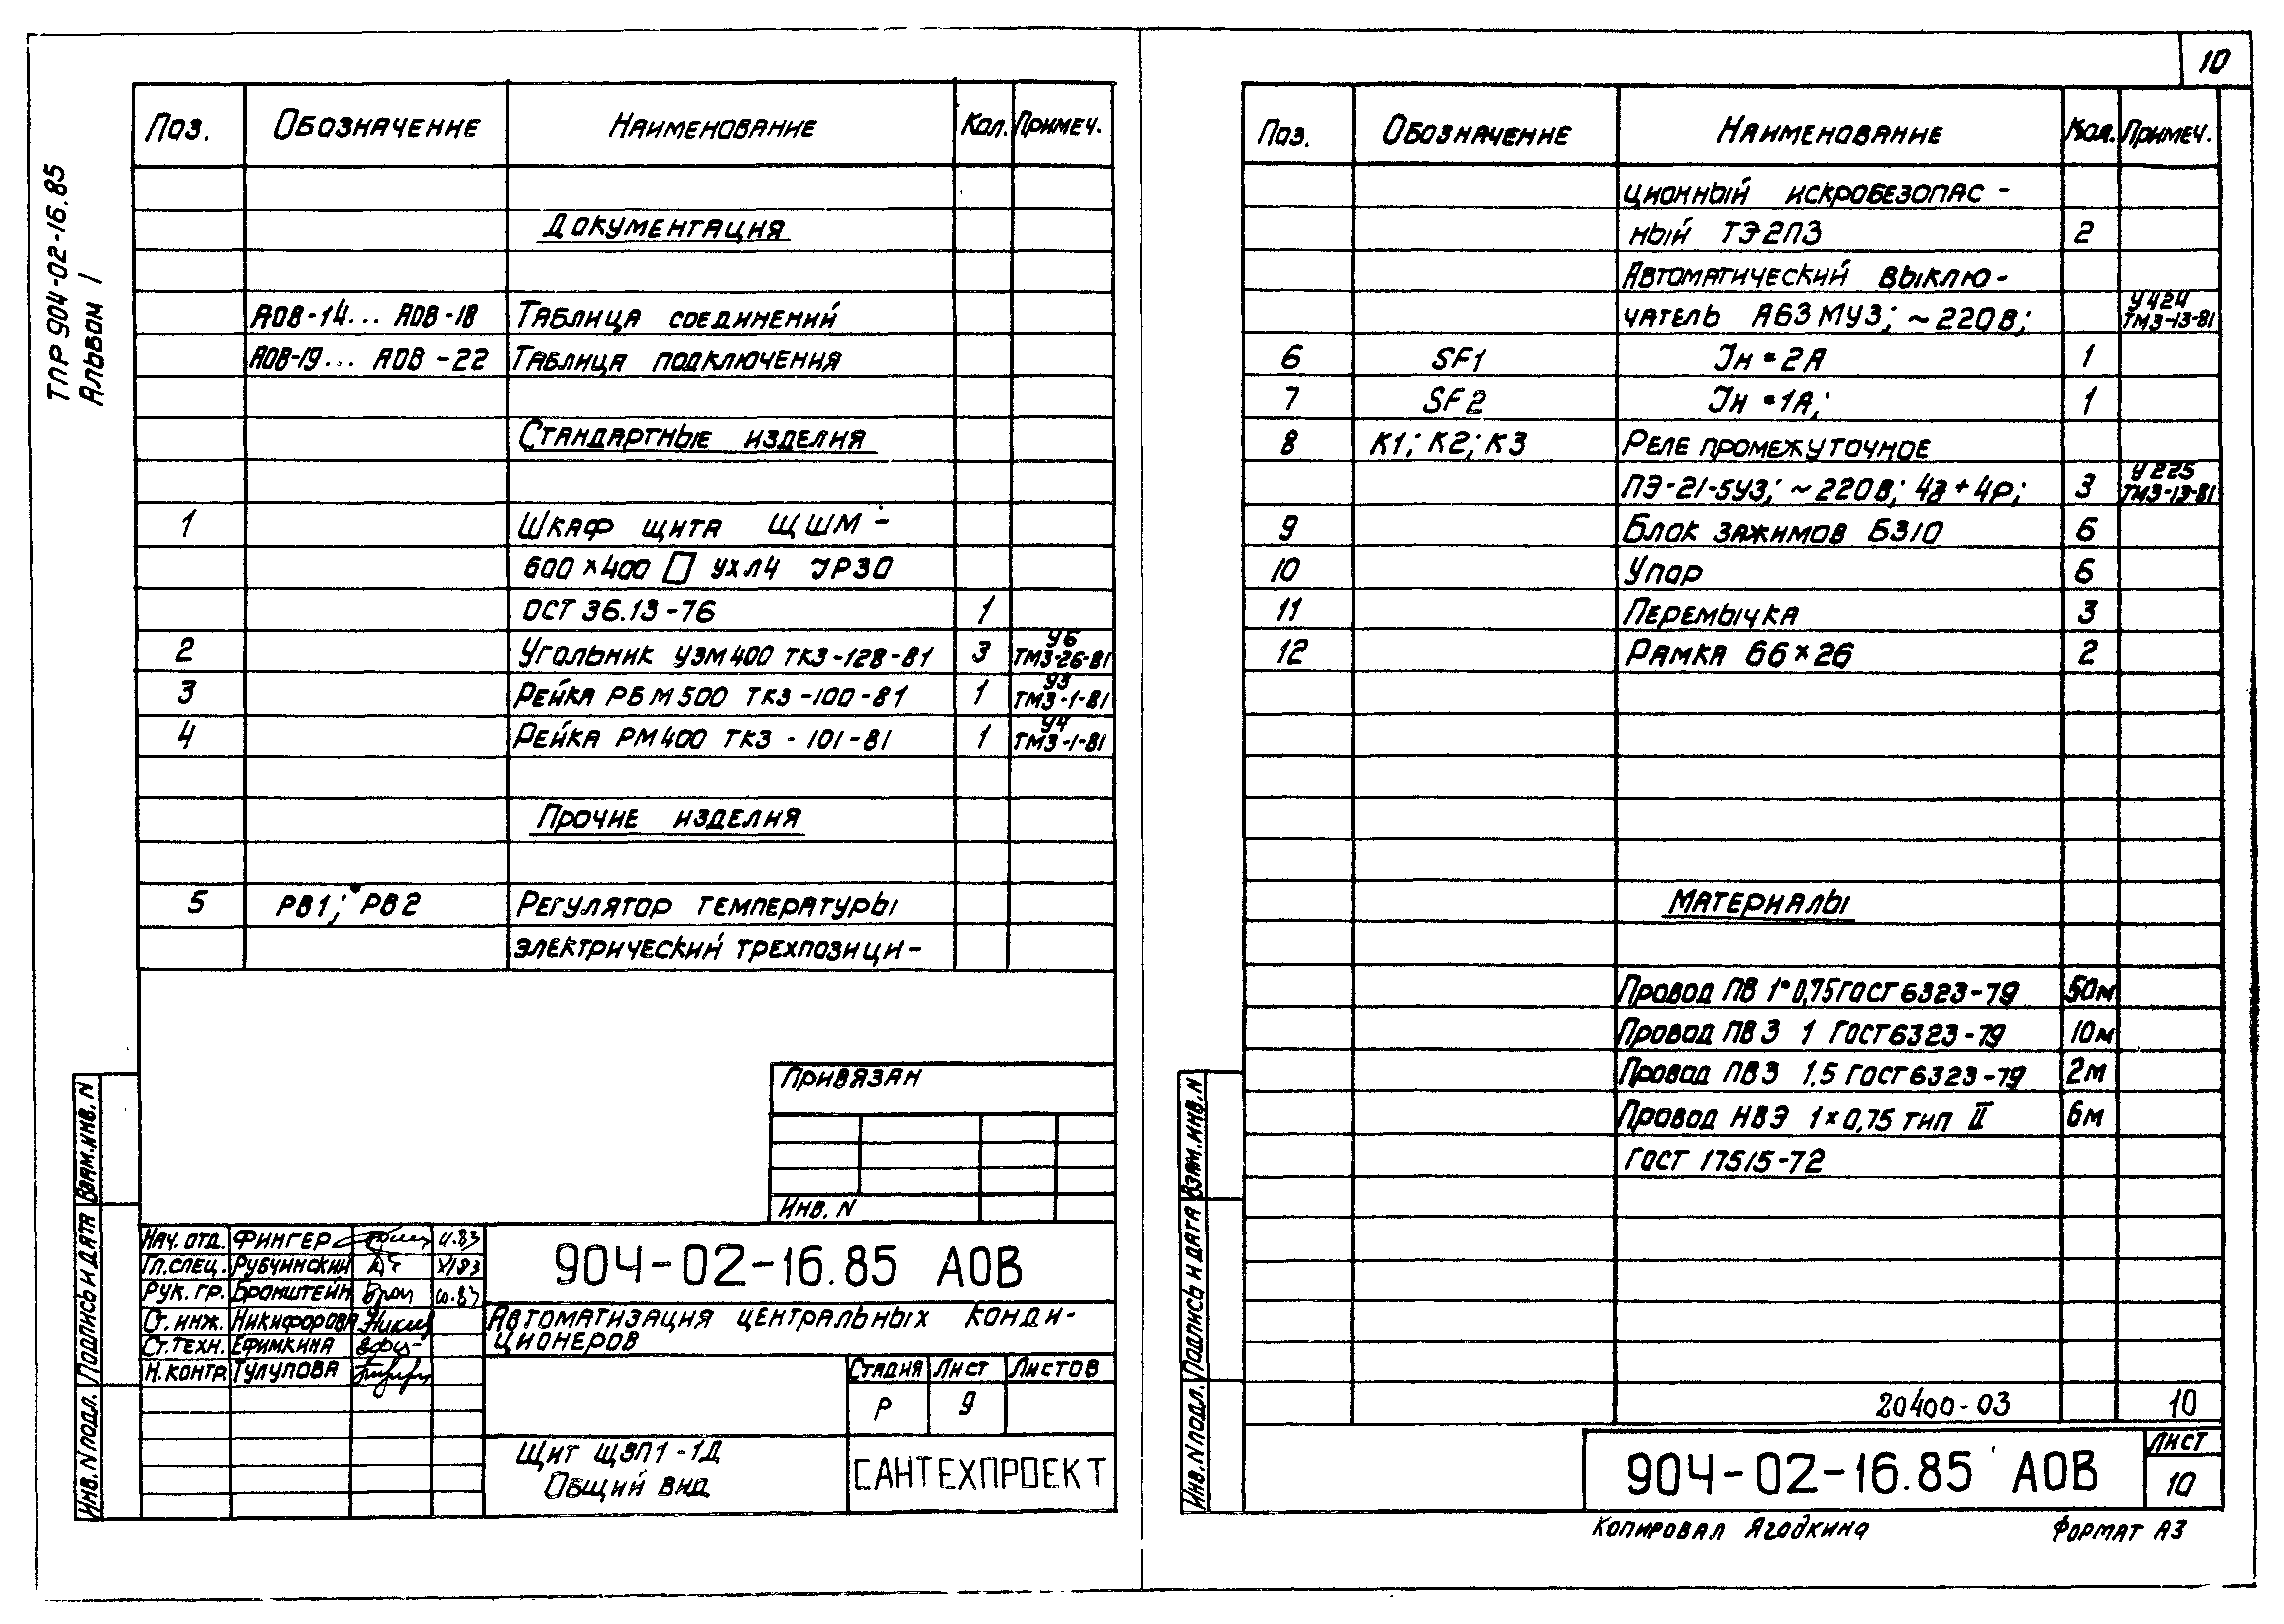 ТПР 904-02-16.85
Альбом I
Поз. Обозначение Наименование Кол. Примеч.
Документация
АОВ-14... АОВ-18 Таблица соединений
АОВ-19... АОВ-22 Таблица подключения
Стандартные изделия
1 Шкаф щита ЩШМ-
600×400 УХЛ4 IP30
ОСТ 36.13-76 1
2 Угольник УЗМ400 ТК3-128-81 3 У6 ТМ3-26-81
3 Рейка РБМ500 ТК3-100-81 1 У3 ТМ3-1-81
4 Рейка РМ400 ТК3-101-81 1 У4 ТМ3-1-81
Прочие изделия
5 РВ1; РВ2 Регулятор температуры
электрический трехпозици-
Привязан
Инв. N
Нач. отд. Фингер
Гл. спец. Рубчинский XI 83
Рук. гр. Бронштейн
Ст. инж. Никифорова
Ст. техн. Ефимкина
Н. контр. Тулупова
904-02-16.85 АОВ
Автоматизация центральных конди-
ционеров
Стадия Лист Листов
Р 9
Щит ЩЗП1-1Д
Общий вид
САНТЕХПРОЕКТ
Взам. инв. N
Подпись и дата
Инв. N подл.
10
Поз. Обозначение Наименование Кол. Примеч.
ционный искробезопас-
ный ТЭ2П3 2
Автоматический выклю-
чатель А63МУ3; ~220В; У424 ТМ3-13-81
6 SF1 Iн=2А 1
7 SF2 Iн=1А; 1
8 К1; К2; К3 Реле промежуточное
ПЭ-21-5У3; ~220В; 4з+4р; 3 У225 ТМ3-13-81
9 Блок зажимов БЗ10 6
10 Упор 6
11 Перемычка 3
12 Рамка 66×26 2
Материалы
Провод ПВ 1×0,75 ГОСТ 6323-79 50м
Провод ПВ3 1 ГОСТ 6323-79 10м
Провод ПВ3 1.5 ГОСТ 6323-79 2м
Провод НВЭ 1×0,75 тип II 6м
ГОСТ 17515-72
20400-03 10
904-02-16.85 АОВ
Лист
10
Взам. инв. N
Подпись и дата
Инв. N подл.
Копировал Ягодкина Формат А3